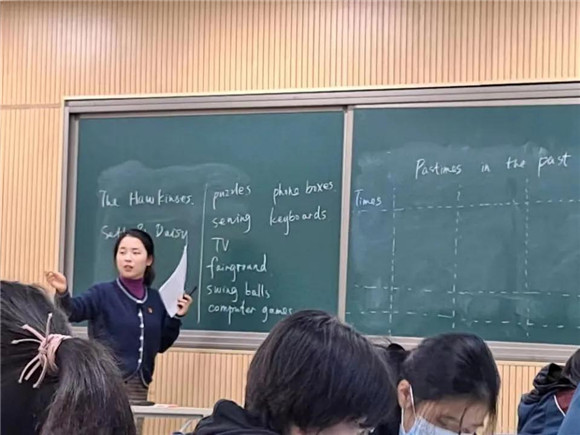 The Hawkinses.
& Daisy
puzzles phone boxes.
sewing keyboards
TV
fairground
swing balls
computer games
Pastimes in the past
Times